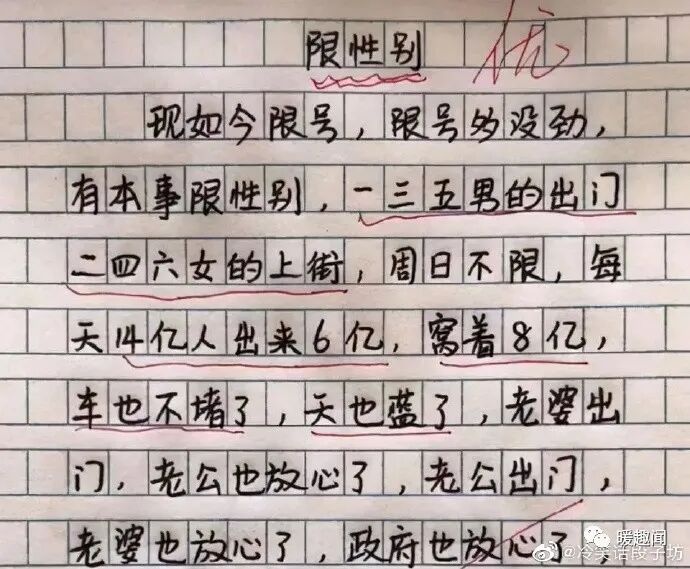 限性别
优
现如今限号，限号多没劲，
有本事限性别，一三五男的出门
二四六女的上街，周日不限，每
天14亿人出来6亿，窝着8亿，
车也不堵了，天也蓝了，老婆出
门，老公也放心了，老公出门，
老婆也放心了，政府也放心了，
暖趣闻
@冷笑话段子坊